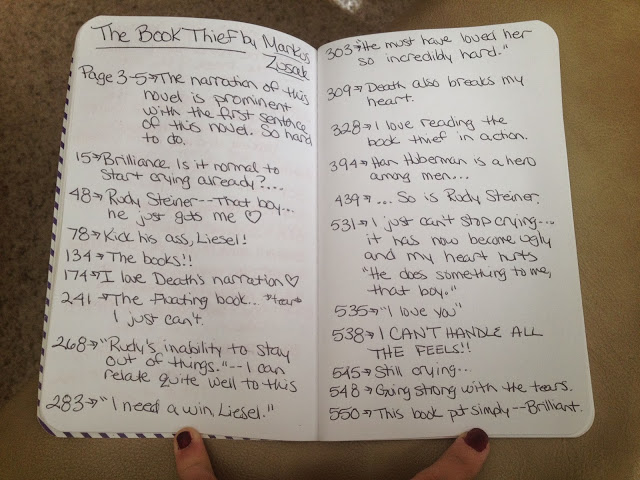 The Book Thief by Markus
Zusak
Page 3-5→The narration of this
novel is prominent
with the first sentence
of this novel. So hard
to do.
15→Brilliance. Is it normal to
start crying already?...
48→Rudy Steiner--That boy...
he just guts me ♡
78→Kick his ass, Liesel!
134→The books!!
174→I love Death's narration♡
241→The floating book... *tear*
I just can't.
268→"Rudy's inability to stay
out of things."--I can
relate quite well to this
283→"I need a win, Liesel."
303→"He must have loved her
so incredibly hard."
309→Death also breaks my
heart.
328→I love reading the
book thief in action.
394→Han Huberman is a hero
among men...
439→... So is Rudy Steiner.
531→I just can't stop crying...
it has now become ugly
and my heart hurts
"He does something to me,
that boy."
535→"I love you"
538→I CAN'T HANDLE ALL
THE FEELS!!
545→Still crying...
548→Going strong with the tears.
550→This book put simply--Brilliant.